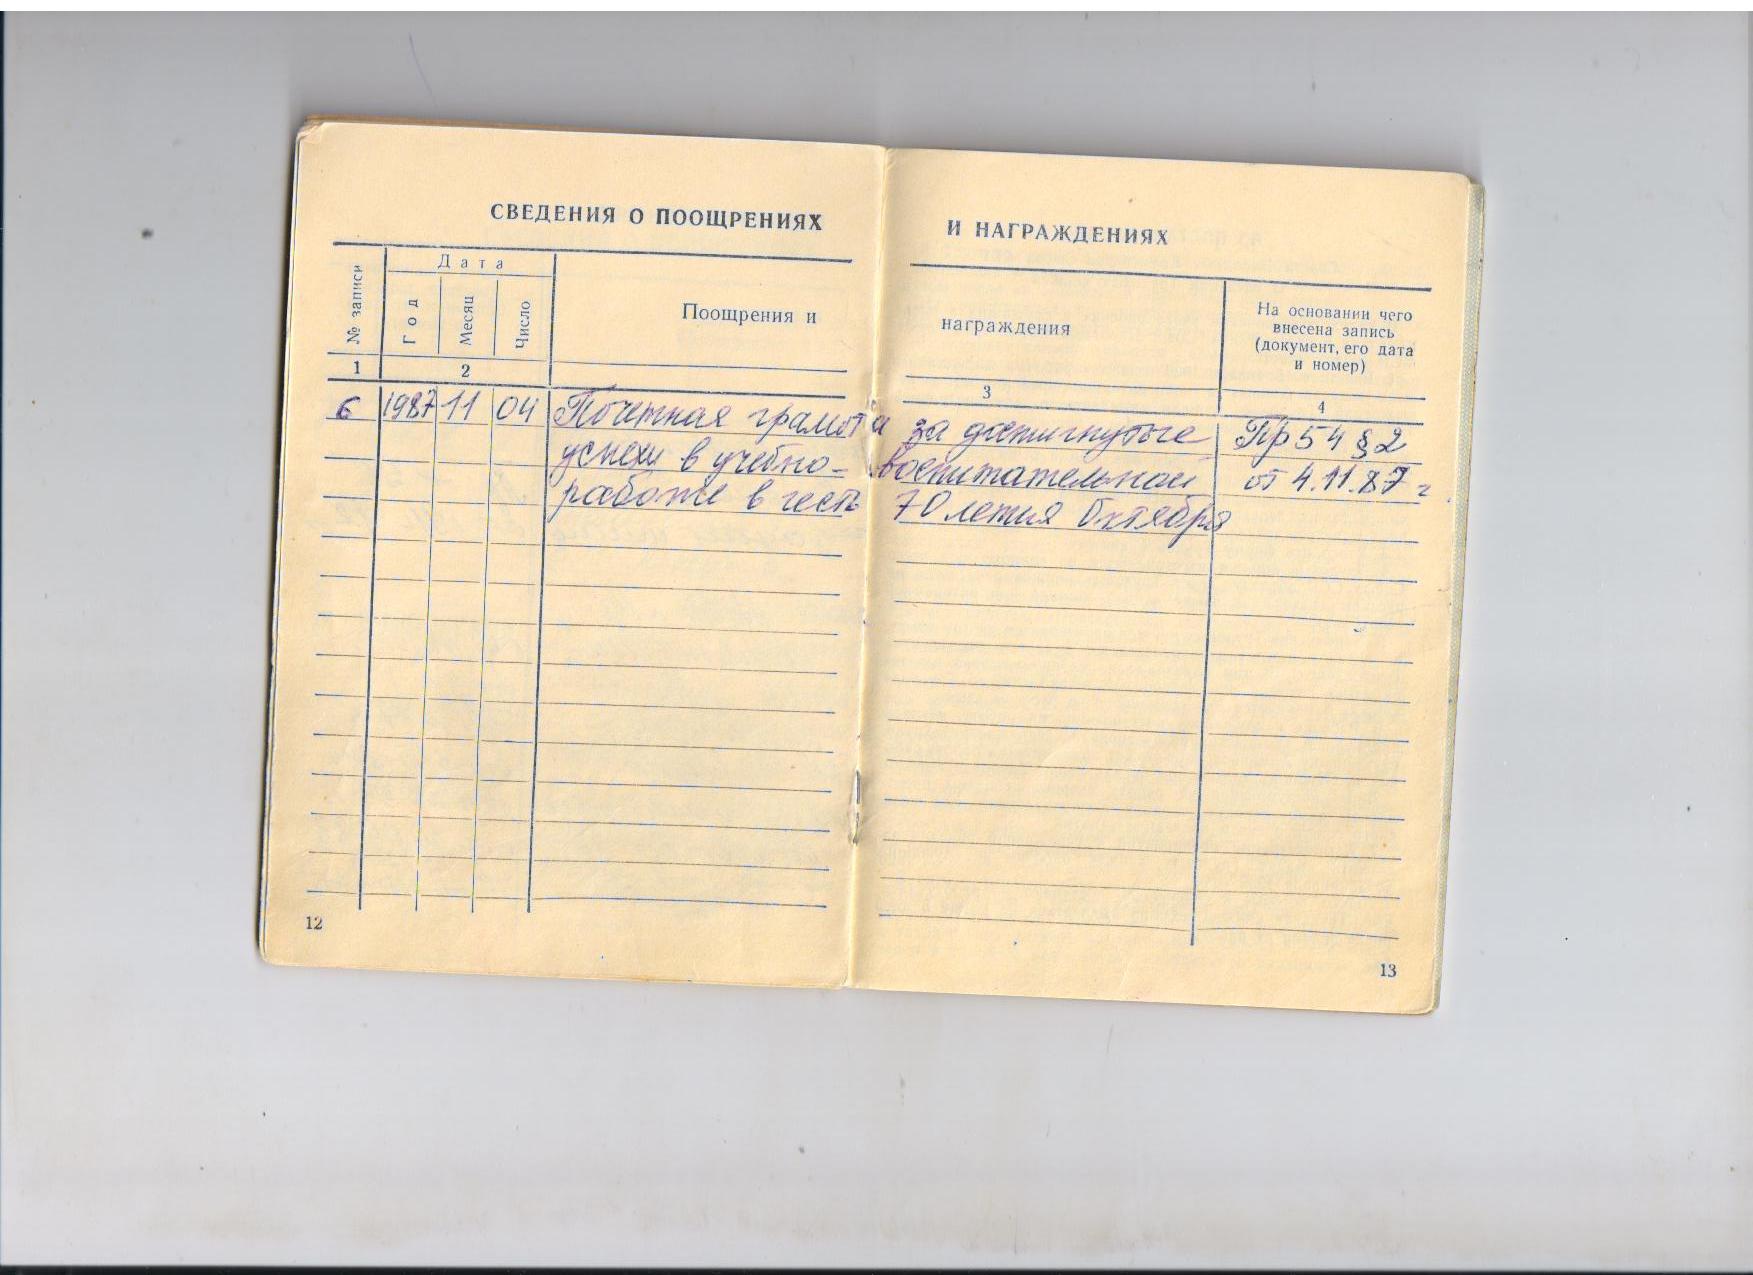 СВЕДЕНИЯ О ПООЩРЕНИЯХ И НАГРАЖДЕНИЯХ
№ записи
Дата
Год
Месяц
Число
Поощрения и награждения
На основании чего
внесена запись
(документ, его дата
и номер)
1 2 3 4
6 1987 11 04 Почетная грамота за достигнутые Пр 54 § 2
успехи в учебно-воспитательной от 4.11.87 г.
работе в честь 70 летия Октября
12
13